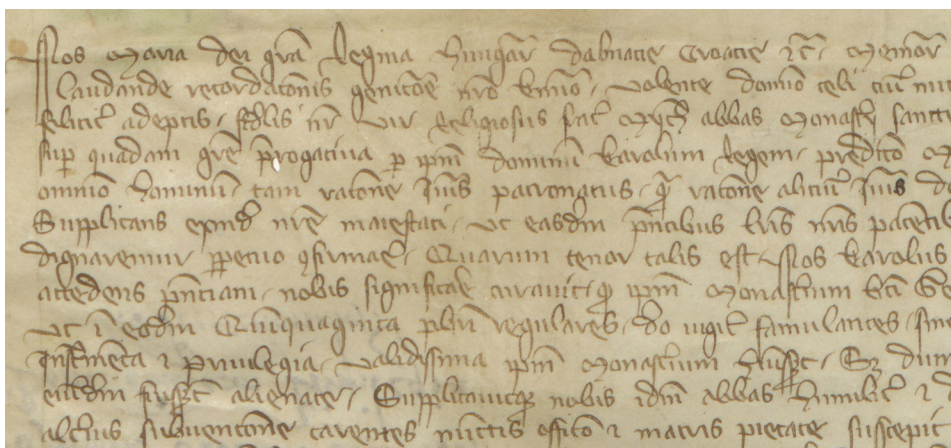 Nos Maria dei gra Regina hungar dalmatie Croatie etc Memor
laudande recordatonis genitore nro krmo volente domino celi
feliciter adeptis fidelis nr vir Religiosus frater abbas Monasterij sancti
sup quadam gre prrogativa p ipm dominum karolum Regem predicto
omnio hominum tam ratone Juris patronatus qm ratone alicuius Juris
Supplicans exinde nre maiestati ut easdem pntibus lris nris patenti
dignaremur perpetuo confirmare Quarum tenor talis est Nos karolus
accedens pntiam nobis significare curavit qd ipm Monasterium bti
ut i eodem Quinquaginta regulares deo iugiter famulantes
instrumenta et privilegia validissima ipm Monasterium huisset
eiusdem fuisset alienate Supplicavitque nobis idem abbas humiliter et
alterius subventone carentes officio et matris pietate suscepit